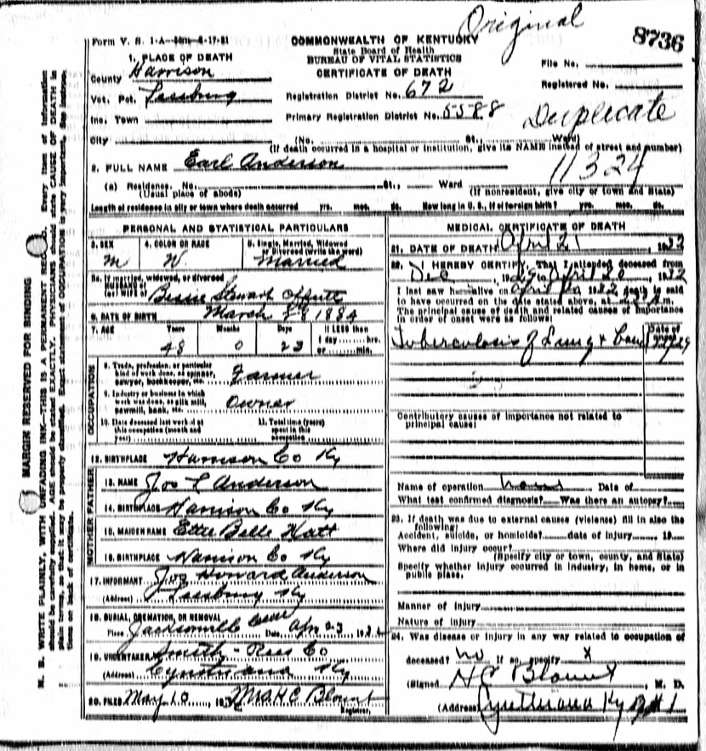 Original
8736
Form V. S. 1-A
COMMONWEALTH OF KENTUCKY
State Board of Health
BUREAU OF VITAL STATISTICS
CERTIFICATE OF DEATH
File No.
Registered No.
1. PLACE OF DEATH
County Harrison
Vot. Pct.
Registration District No. 672
Inc. Town
Primary Registration District No. 5588
Duplicate
City (No. St., Ward)
(If death occurred in a hospital or institution, give its NAME instead of street and number)
11324
2. FULL NAME Earl Anderson
(a) Residence. No. St., Ward
(Usual place of abode) (If nonresident, give city or town and State)
Length of residence in city or town where death occurred yrs. mos. ds. How long in U. S., if of foreign birth? yrs. mos. ds.
PERSONAL AND STATISTICAL PARTICULARS
3. SEX 4. COLOR OR RACE 5. Single, Married, Widowed
or Divorced (write the word)
M W Married
5a. If married, widowed, or divorced
HUSBAND of
(or) WIFE of Bessie Stewart Offutt
6. DATE OF BIRTH March 1884
7. AGE Years Months Days If LESS than
1 day hrs.
48 0 23 or min.
OCCUPATION
8. Trade, profession, or particular
kind of work done, as spinner,
sawyer, bookkeeper, etc. Farmer
9. Industry or business in which
work was done, as silk mill,
sawmill, bank, etc. Owner
10. Date deceased last worked at
this occupation (month and
year)
11. Total time (years)
spent in this
occupation
12. BIRTHPLACE Harrison Co Ky
FATHER
13. NAME Jos L Anderson
14. BIRTHPLACE Harrison Co Ky
MOTHER
15. MAIDEN NAME Etta Belle Hatt
16. BIRTHPLACE Harrison Co Ky
17. INFORMANT Howard Anderson
(Address) Ky
18. BURIAL, CREMATION, OR REMOVAL
Place Jacksonville Date Apr 23 1932
19. UNDERTAKER Smith-Rees Co
(Address) Cynthiana Ky
20. FILED May 10 193 Mrs H C Blount
Registrar.
MEDICAL CERTIFICATE OF DEATH
21. DATE OF DEATH April 21, 1932
22. I HEREBY CERTIFY, That I attended deceased from
Dec , to April 20, 1932
I last saw h alive on April 1932 death is said
to have occurred on the date stated above, at m.
The principal cause of death and related causes of importance
in order of onset were as follows:
Date of
Tuberculosis of Lung &
Contributory causes of importance not related to
principal cause:
Name of operation none Date of
What test confirmed diagnosis? Was there an autopsy?
23. If death was due to external causes (violence) fill in also the
following:
Accident, suicide, or homicide? date of injury 19
Where did injury occur?
(Specify city or town, county, and State)
Specify whether injury occurred in industry, in home, or in
public place.
Manner of injury
Nature of injury
24. Was disease or injury in any way related to occupation of
deceased? no If so, specify x
(Signed H C Blount, M. D.
(Address) Cynthiana Ky
MARGIN RESERVED FOR BINDING
N. B. WRITE PLAINLY, WITH UNFADING INK—THIS IS A PERMANENT RECORD. Every item of information
should be carefully supplied. AGE should be stated EXACTLY. PHYSICIANS should state CAUSE OF DEATH in
plain terms, so that it may be properly classified. Exact statement of OCCUPATION is very important. See instruc-
tions on back of certificate.